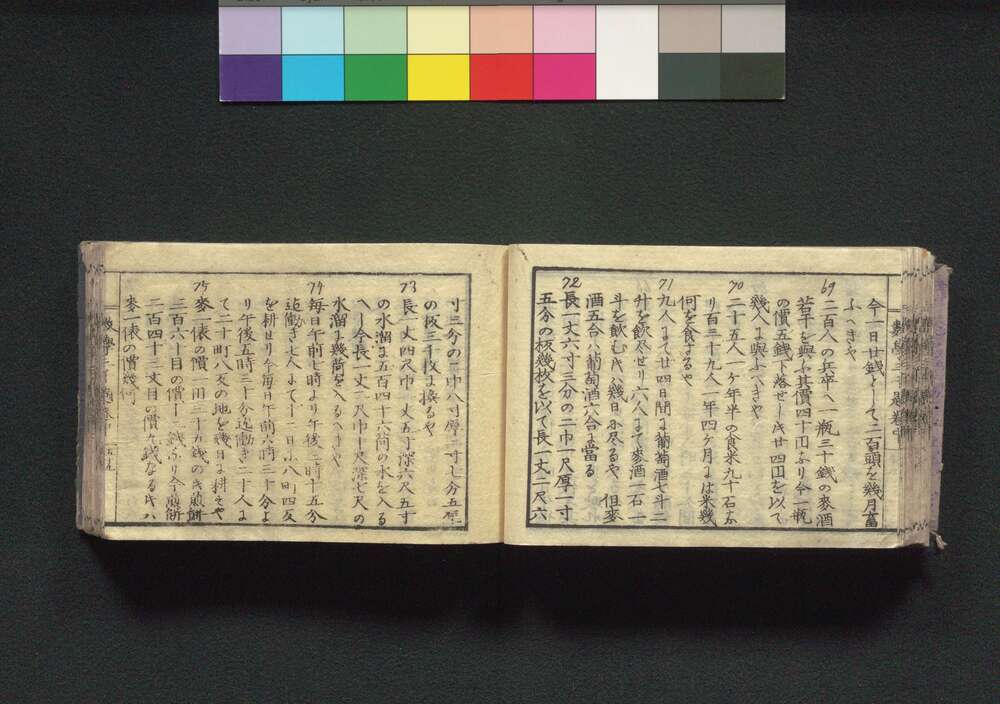 今一日廿銭として二百頭を幾月畜
ふへきや
69
二百人の兵卒へ一瓶三十銭の麥酒
若干を與ふ其價四十円なり今一瓶
の價五銭下落せしハ廿四円を以て
幾人に與ふへきや
70
二十五人一ケ年半の食米九十石な
り百三十九人一年四ケ月には米幾
何を食するや
71
九人にて廿四日間に葡萄酒七斗二
升を飲尽せり六人にて麥酒一石一
斗を飲むハ幾日に尽るや但麥
酒五合ハ葡萄酒六合に當る
72
長一丈六寸三分の二巾一尺厚一寸
五分の板幾枚を以て長一丈二尺六
寸三分の一巾八寸厚二寸七分五厘
の板三千枚に換るや
73
長一丈四尺巾一丈五寸深六尺五寸
の水溜に五百四十六荷の水を入る
へし今長一丈一尺巾一丈深七尺の
水溜に幾荷を入るへきや
74
毎日午前七時より午後二時十五分
迄働き七人にて十二日に八町四反
を耕せり今毎日午前六時三十分よ
り午後五時三十分迄働き二十人に
て二十町八反の地を幾日に耕すや
75
麥一俵の價一円三十五銭のき煎餅
三百六十目の價十二銭なり今煎餅
二百四十二文目の價九銭なるハ
麥一俵の價幾何